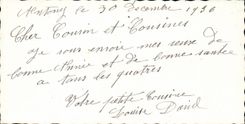 le 30 Decembre 1936
Cher Cousin et Cousines
Je vous envoie mes veux de
bonne Année et de bonne santée
a tous les quatres
Votre petite Cousine
Louise David